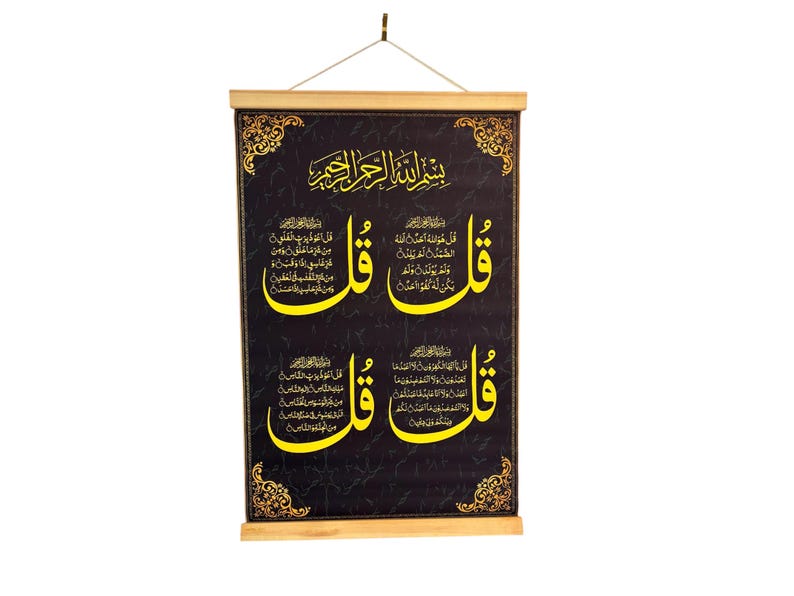 بِسْمِ اللهِ الرَّحْمٰنِ الرَّحِيْمِ
قُل
بِسْمِ اللهِ الرَّحْمٰنِ الرَّحِيْمِ
قُلْ هُوَ اللهُ اَحَدٌ ۞ اَللهُ
الصَّمَدُ ۞ لَمْ يَلِدْ ۞
وَلَمْ يُوْلَدْ ۞ وَلَمْ
يَكُنْ لَّهٗ كُفُوًا اَحَدٌ ۞
قُل
بِسْمِ اللهِ الرَّحْمٰنِ الرَّحِيْمِ
قُلْ اَعُوْذُ بِرَبِّ الْفَلَقِ ۞
مِنْ شَرِّ مَا خَلَقَ ۞ وَمِنْ
شَرِّ غَاسِقٍ اِذَا وَقَبَ ۞ وَ
مِنْ شَرِّ النَّفّٰثٰتِ فِي الْعُقَدِ ۞
وَمِنْ شَرِّ حَاسِدٍ اِذَا حَسَدَ ۞
قُل
بِسْمِ اللهِ الرَّحْمٰنِ الرَّحِيْمِ
قُلْ يٰۤاَيُّهَا الْكٰفِرُوْنَ ۞ لَاۤ اَعْبُدُ مَا
تَعْبُدُوْنَ ۞ وَلَاۤ اَنْتُمْ عٰبِدُوْنَ مَاۤ
اَعْبُدُ ۞ وَلَاۤ اَنَا عَابِدٌ مَّا عَبَدْتُّمْ ۞
وَلَاۤ اَنْتُمْ عٰبِدُوْنَ مَاۤ اَعْبُدُ ۞ لَكُمْ
دِيْنُكُمْ وَلِيَ دِيْنِ ۞
قُل
بِسْمِ اللهِ الرَّحْمٰنِ الرَّحِيْمِ
قُلْ اَعُوْذُ بِرَبِّ النَّاسِ ۞
مَلِكِ النَّاسِ ۞ اِلٰهِ النَّاسِ ۞
مِنْ شَرِّ الْوَسْوَاسِ الْخَنَّاسِ ۞
الَّذِيْ يُوَسْوِسُ فِيْ صُدُوْرِ النَّاسِ ۞
مِنَ الْجِنَّةِ وَالنَّاسِ ۞